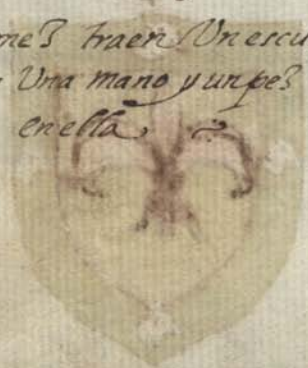 mez traen Un escu
Una mano y un pez
en ella